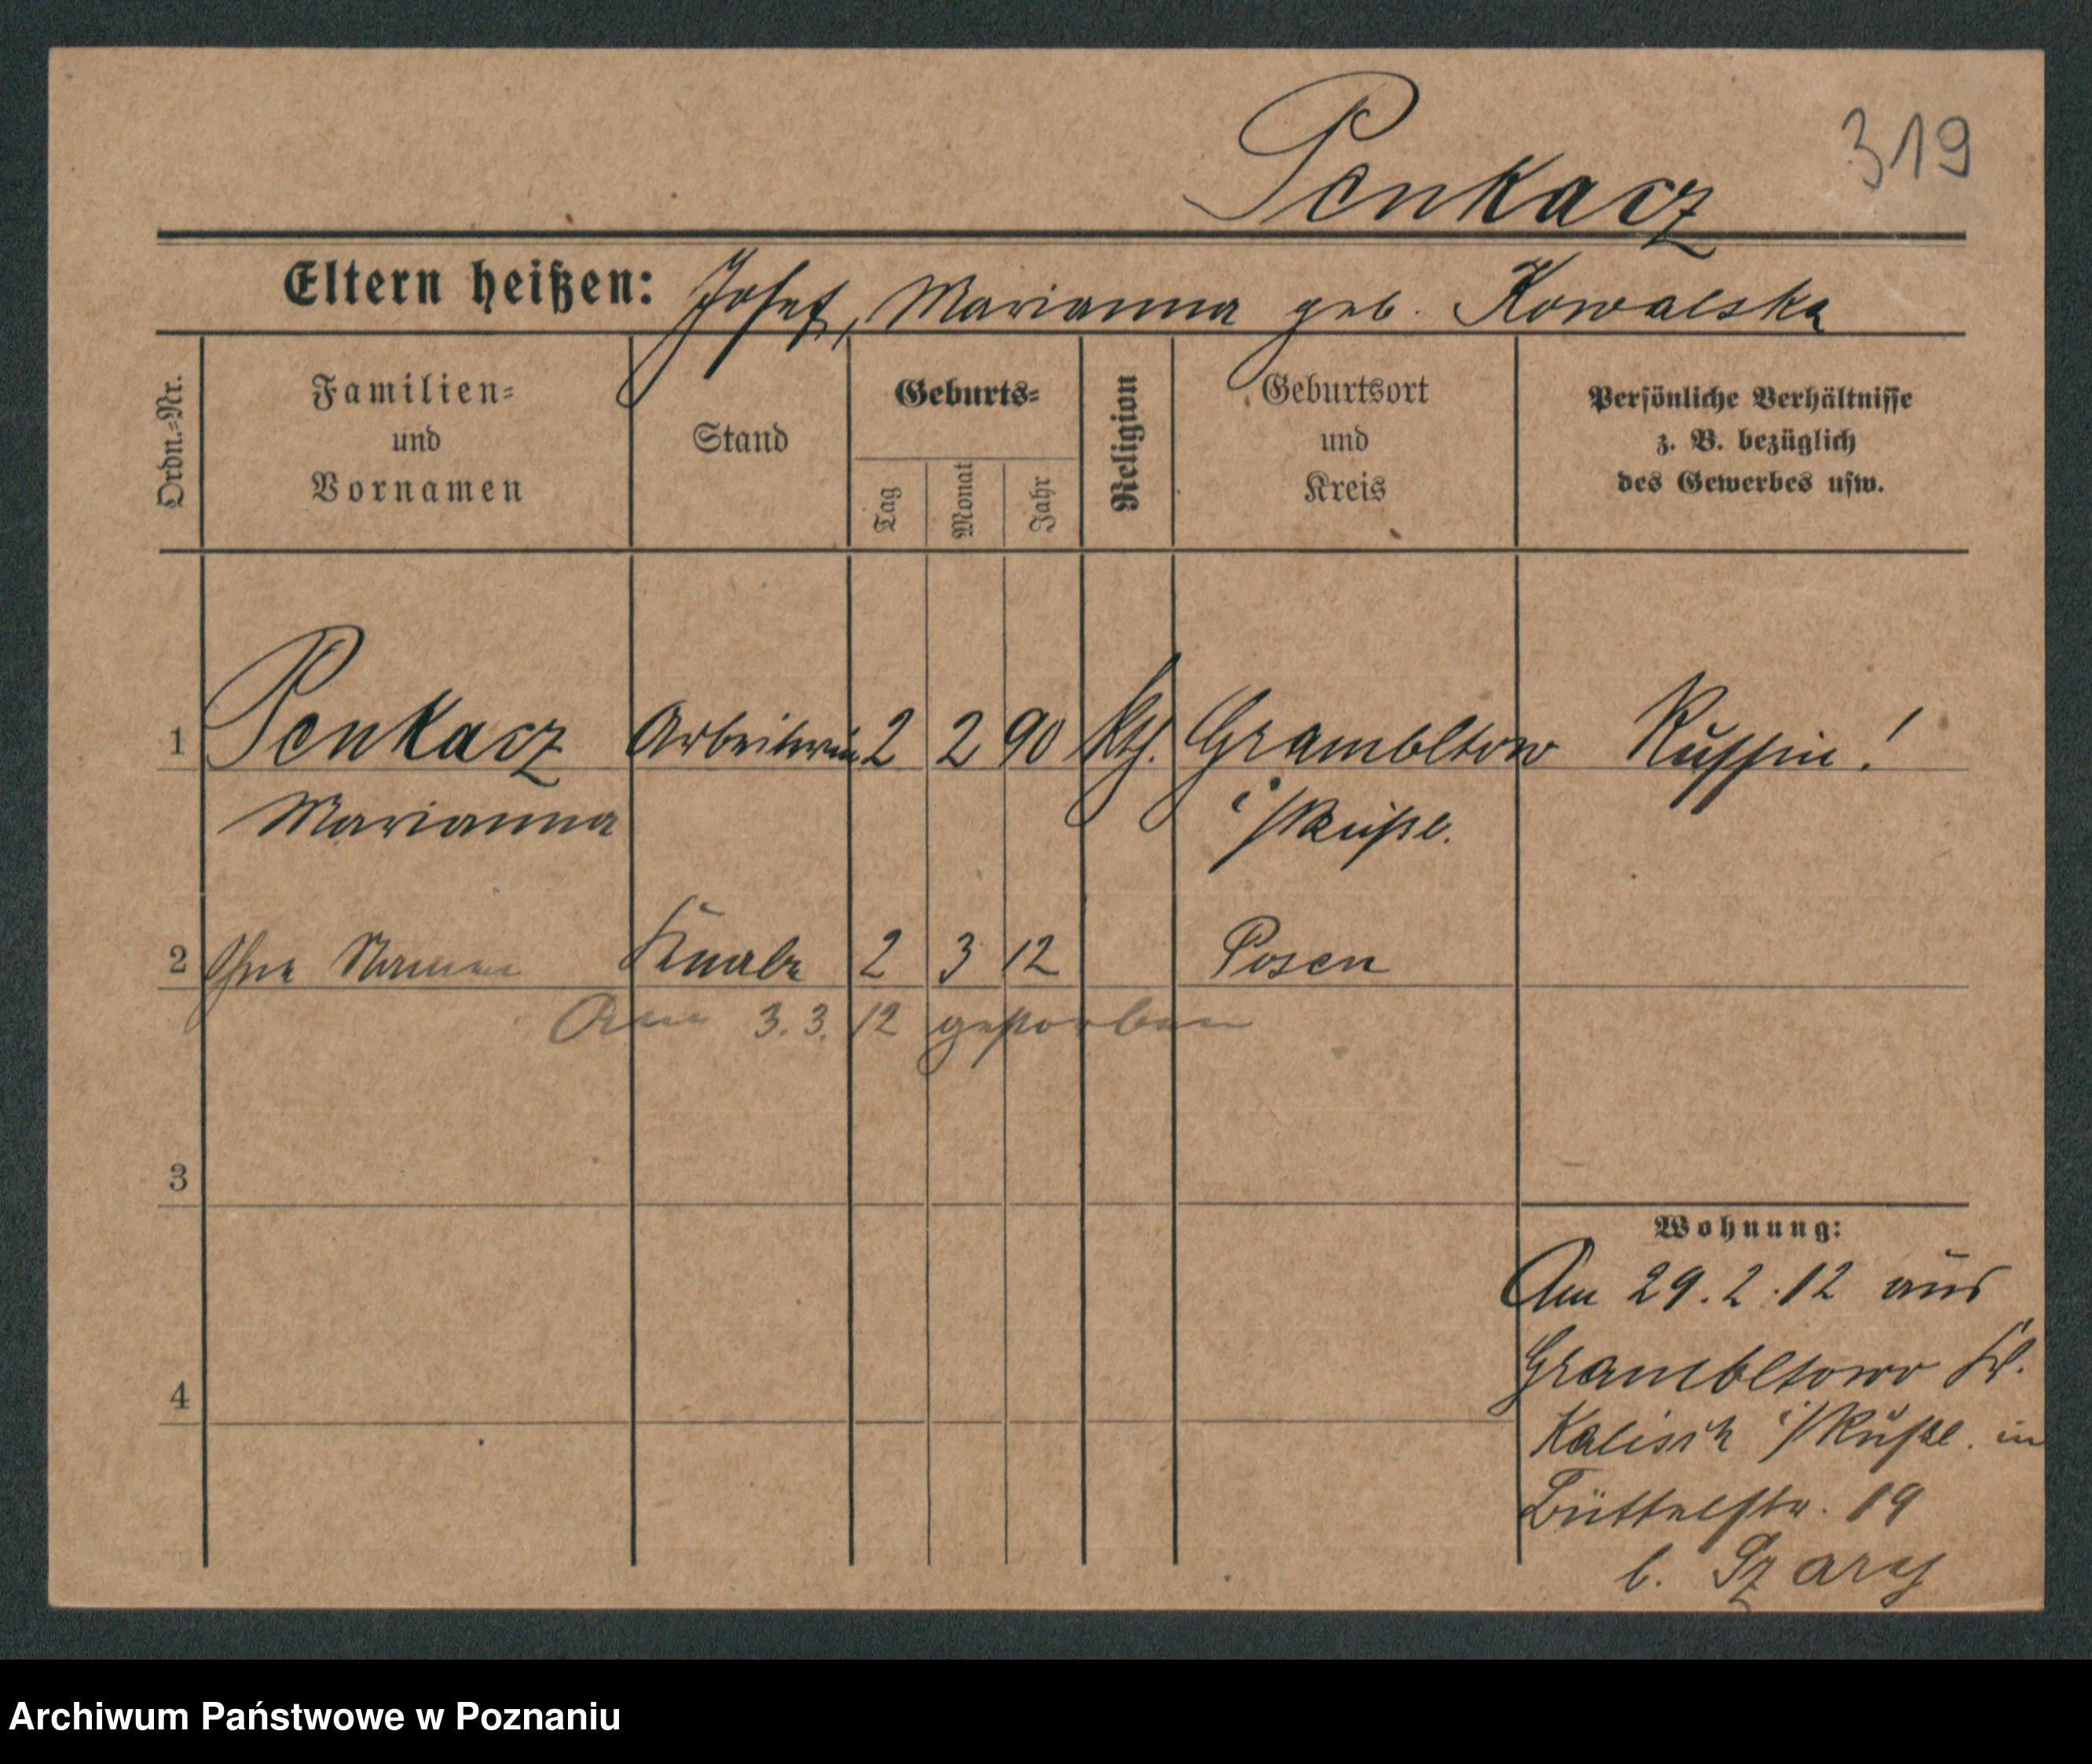 Penkacz
319
Eltern heißen: Josef, Marianna geb. Kowalska
Ordn.-Nr.
Familien-
und
Vornamen
Stand
Geburts-
Tag
Monat
Jahr
Religion
Geburtsort
und
Kreis
Persönliche Verhältnisse
z. B. bezüglich
des Gewerbes usw.
1 Penkacz Arbeiterin 2 2 90 kth. Grambltow Russin!
Marianna i/Rußl.
2 Ohne Namen Knabe 2 3 12 Posen
Am 3.3.12 gestorben
3
Wohnung:
Am 29.2.12 aus
Grambltowo Kr.
4
Kalisch i/Rußl. in
Büttelstr. 19
b. Szary
Archiwum Państwowe w Poznaniu